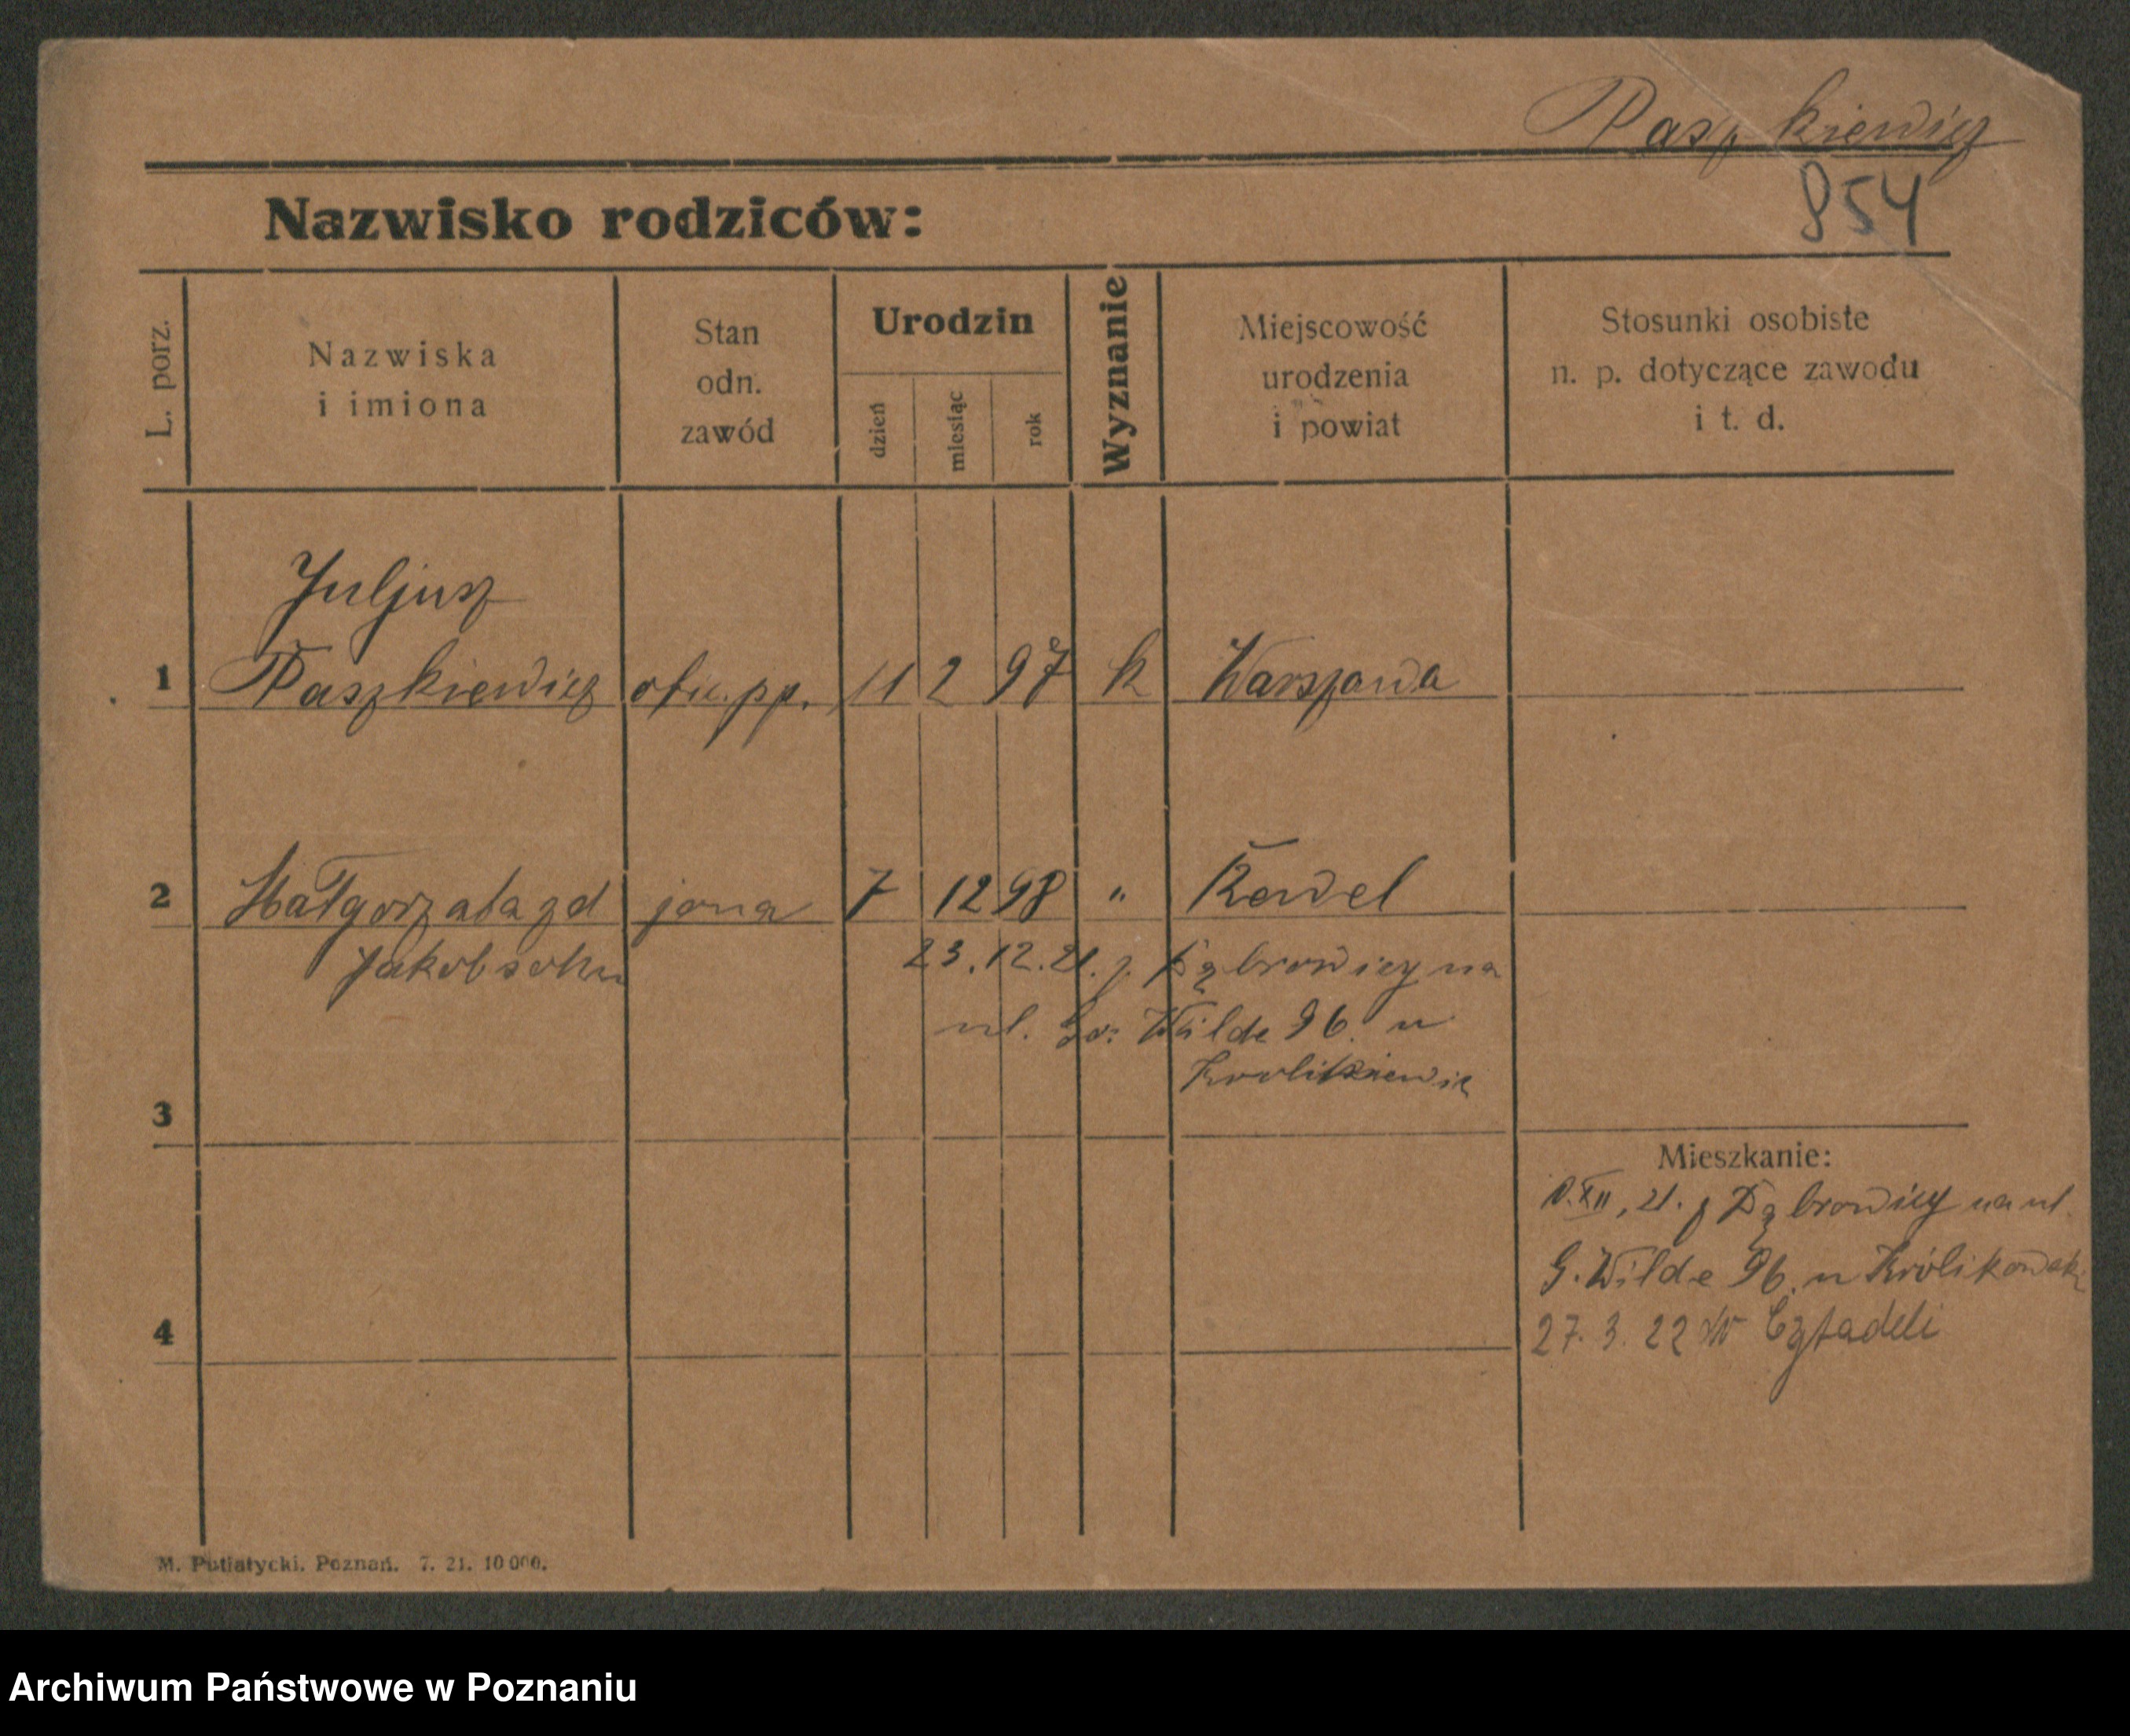 Paszkiewicz
854
Nazwisko rodziców:
L. porz.
Nazwiska
i imiona
Stan
odn.
zawód
Urodzin
dzień
miesiąc
rok
Wyznanie
Miejscowość
urodzenia
i powiat
Stosunki osobiste
n. p. dotyczące zawodu
i t. d.
Juljusz
1 Paszkiewicz ofic. pp. 11 2 97 k Warszawa
2 Małgorzata zd żona 7 12 98 " Kowel
Jakobsohn
23.12.21. z Dąbrowicy na
ul. Gór. Wilde 96. u
3
Mieszkanie:
XII, 21. z Dąbrowicy na ul.
G. Wilde 96. u
4
27. 3. 22 W Cytadeli
M. Putiatycki. Poznań. 7. 21. 10 000.
Archiwum Państwowe w Poznaniu